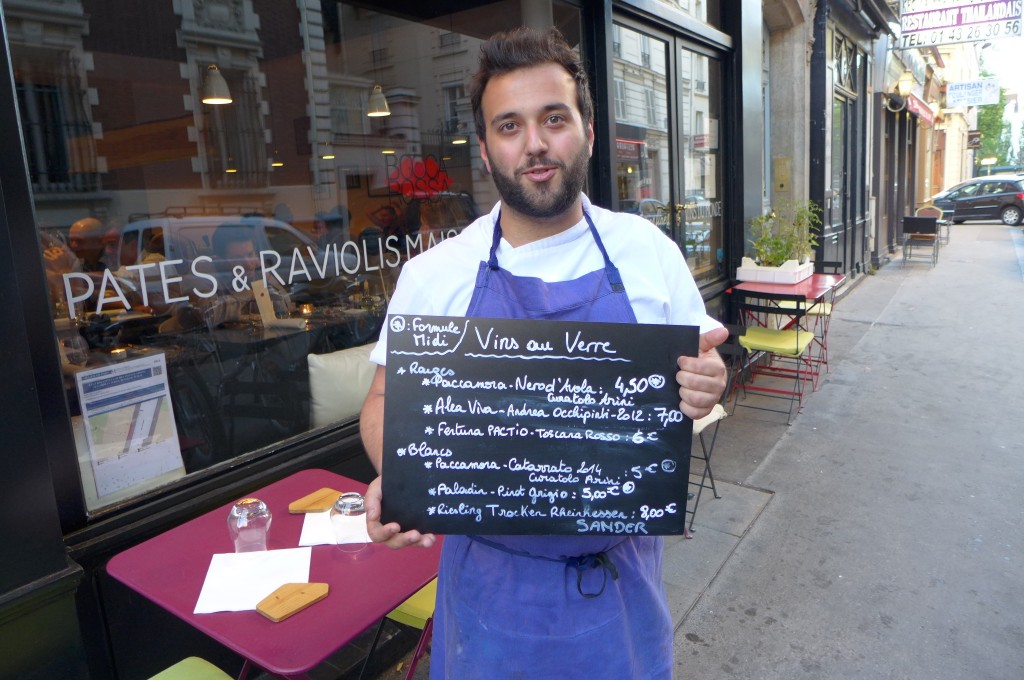 RESTAURANT THAILANDAIS
TEL. 01 43 26 30 56
ARTISAN
PATES & RAVIOLIS MAISON
: Formule
Midi
Vins au Verre
* Rouges
* Paccamora - Nero d'Avola : 4,50
Curatolo Arini
* Alea Viva - Andrea Occhipinti - 2012 : 7,00
* Fertuna PACTIO - Toscana Rosso : 6 €
* Blancs
* Paccamora - Catarrato 2014 : 5 €
Curatolo Arini
* Paladin - Pinot Grigio : 5,00 €
* Riesling Trocken Rheinhessen : 8,00 €
SANDER